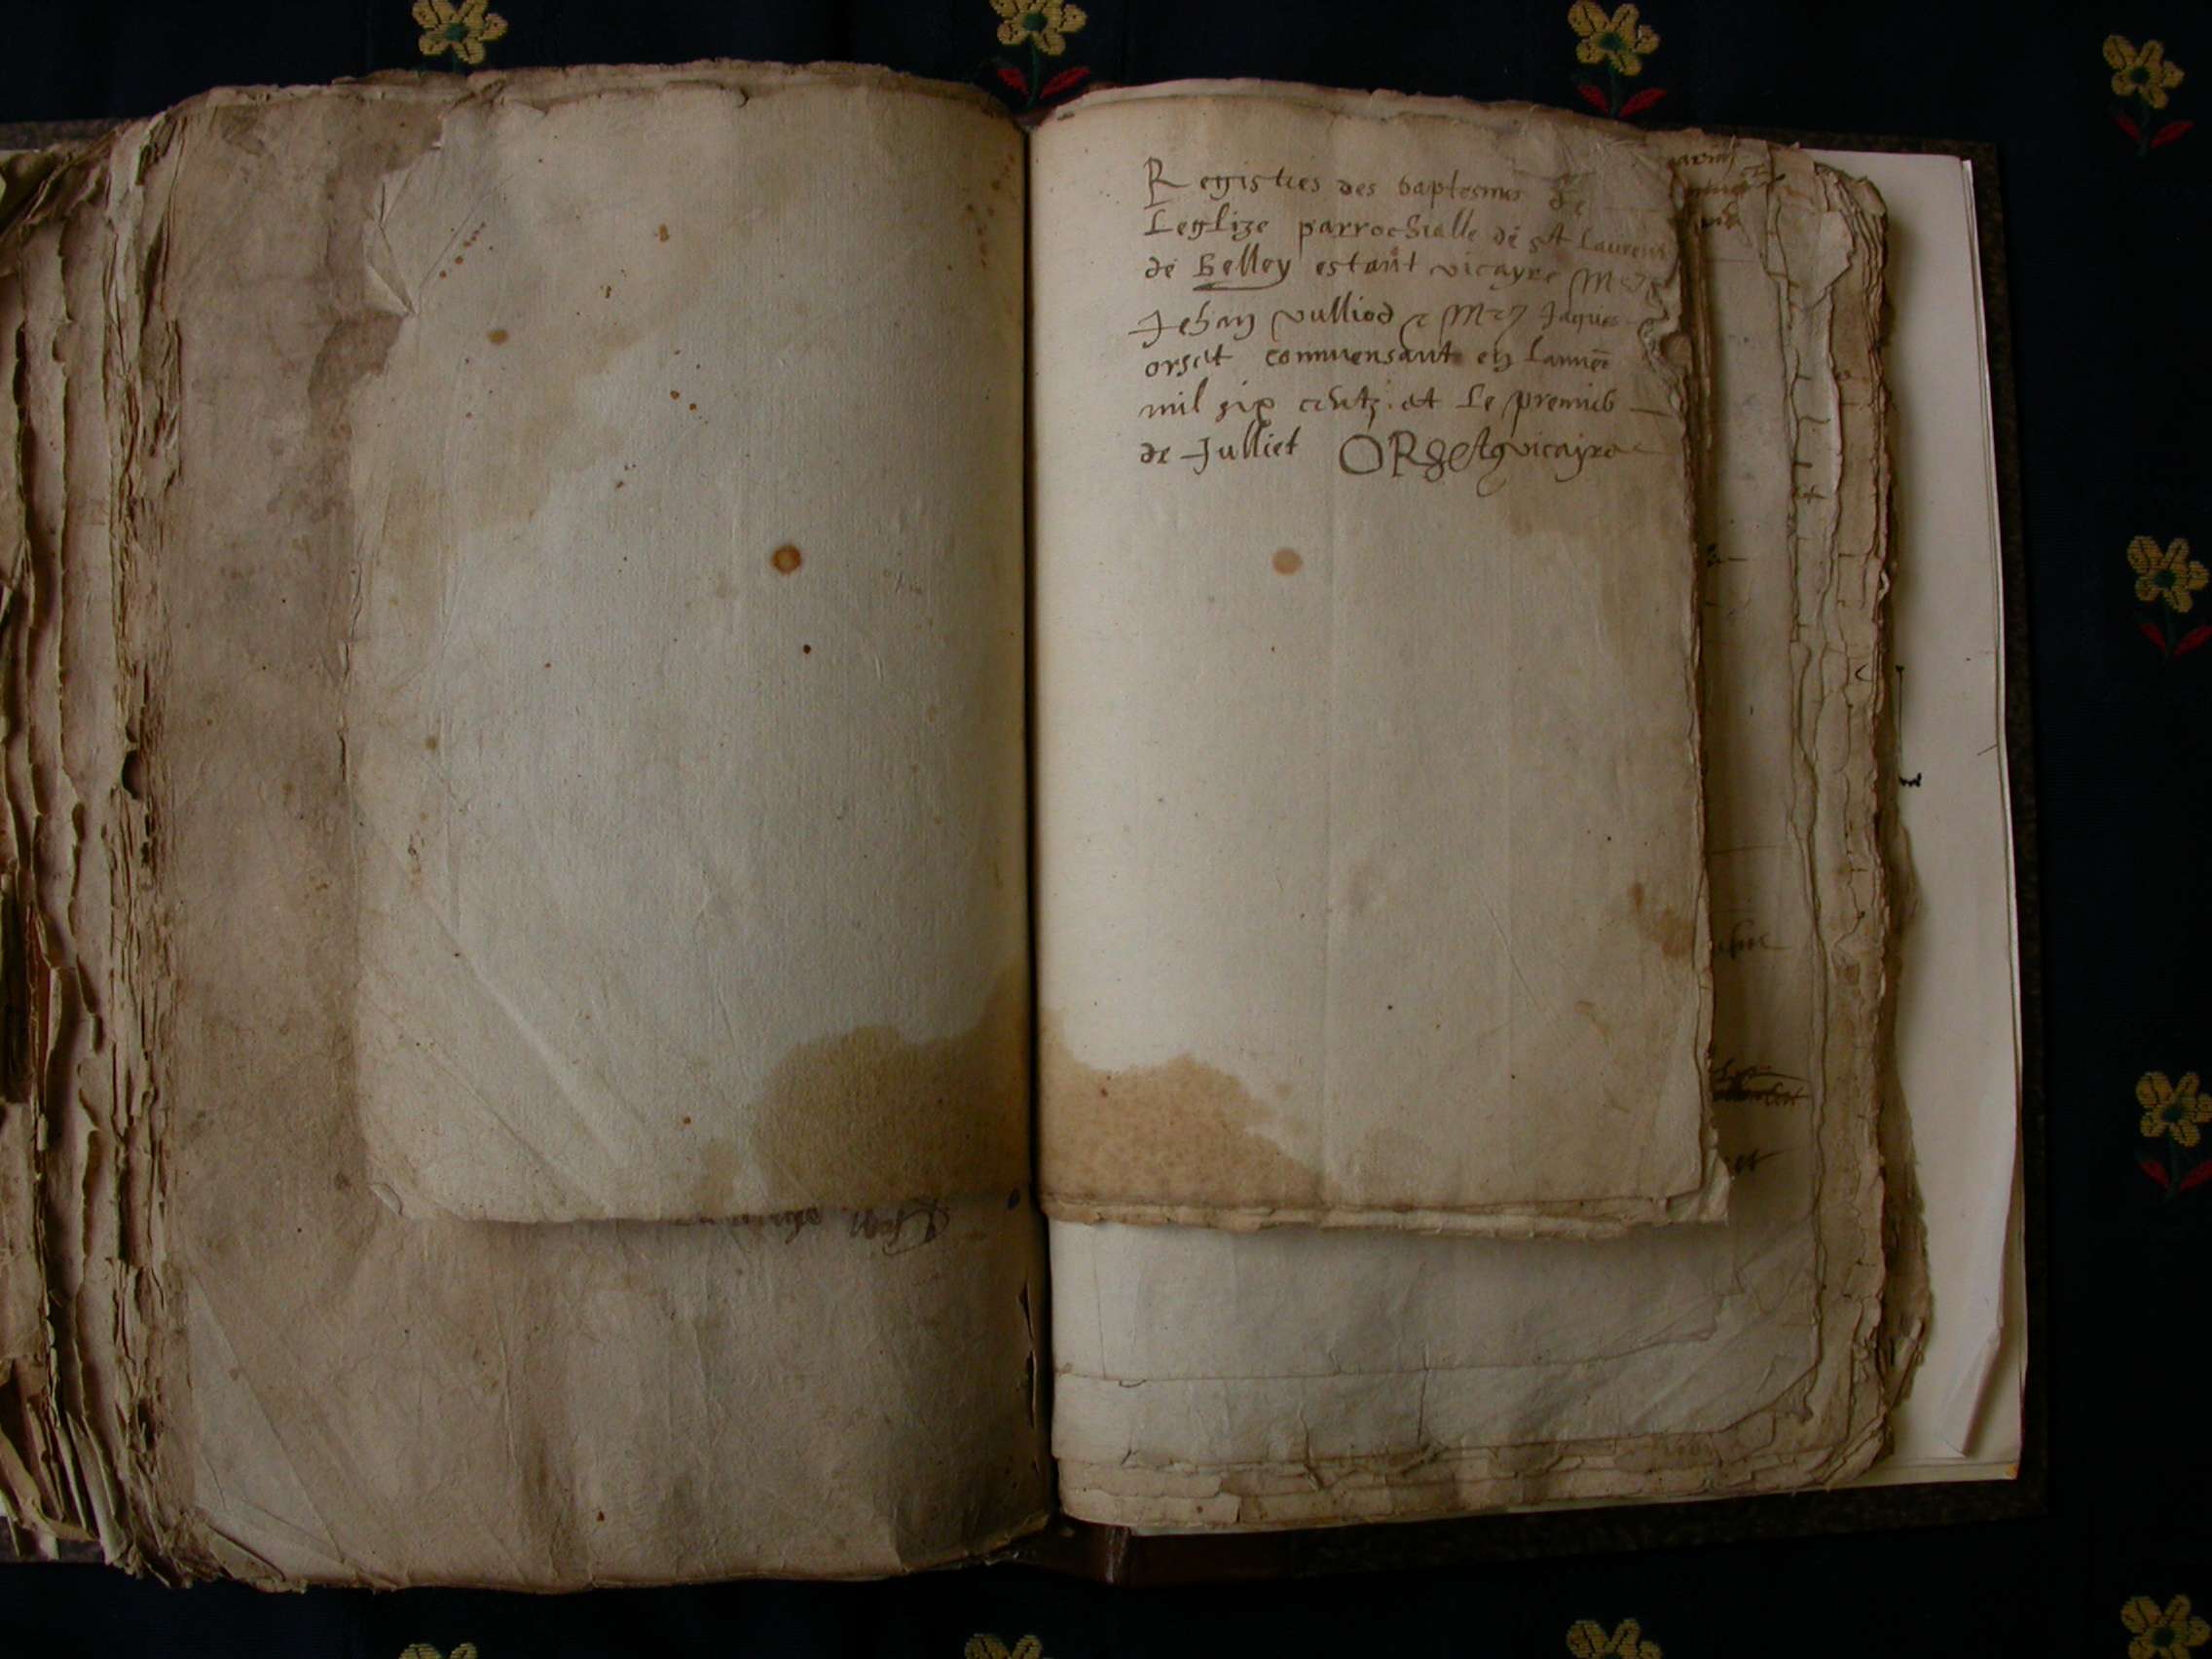 Registres des baptesmes de
Leglize parrochialle de st Laurent
de Belley estant vicayre Mre
Jehan vulliod & Mre Jaques
orset commensant en lannee
mil six centz et le premier
de Julliet ORSet vicayre